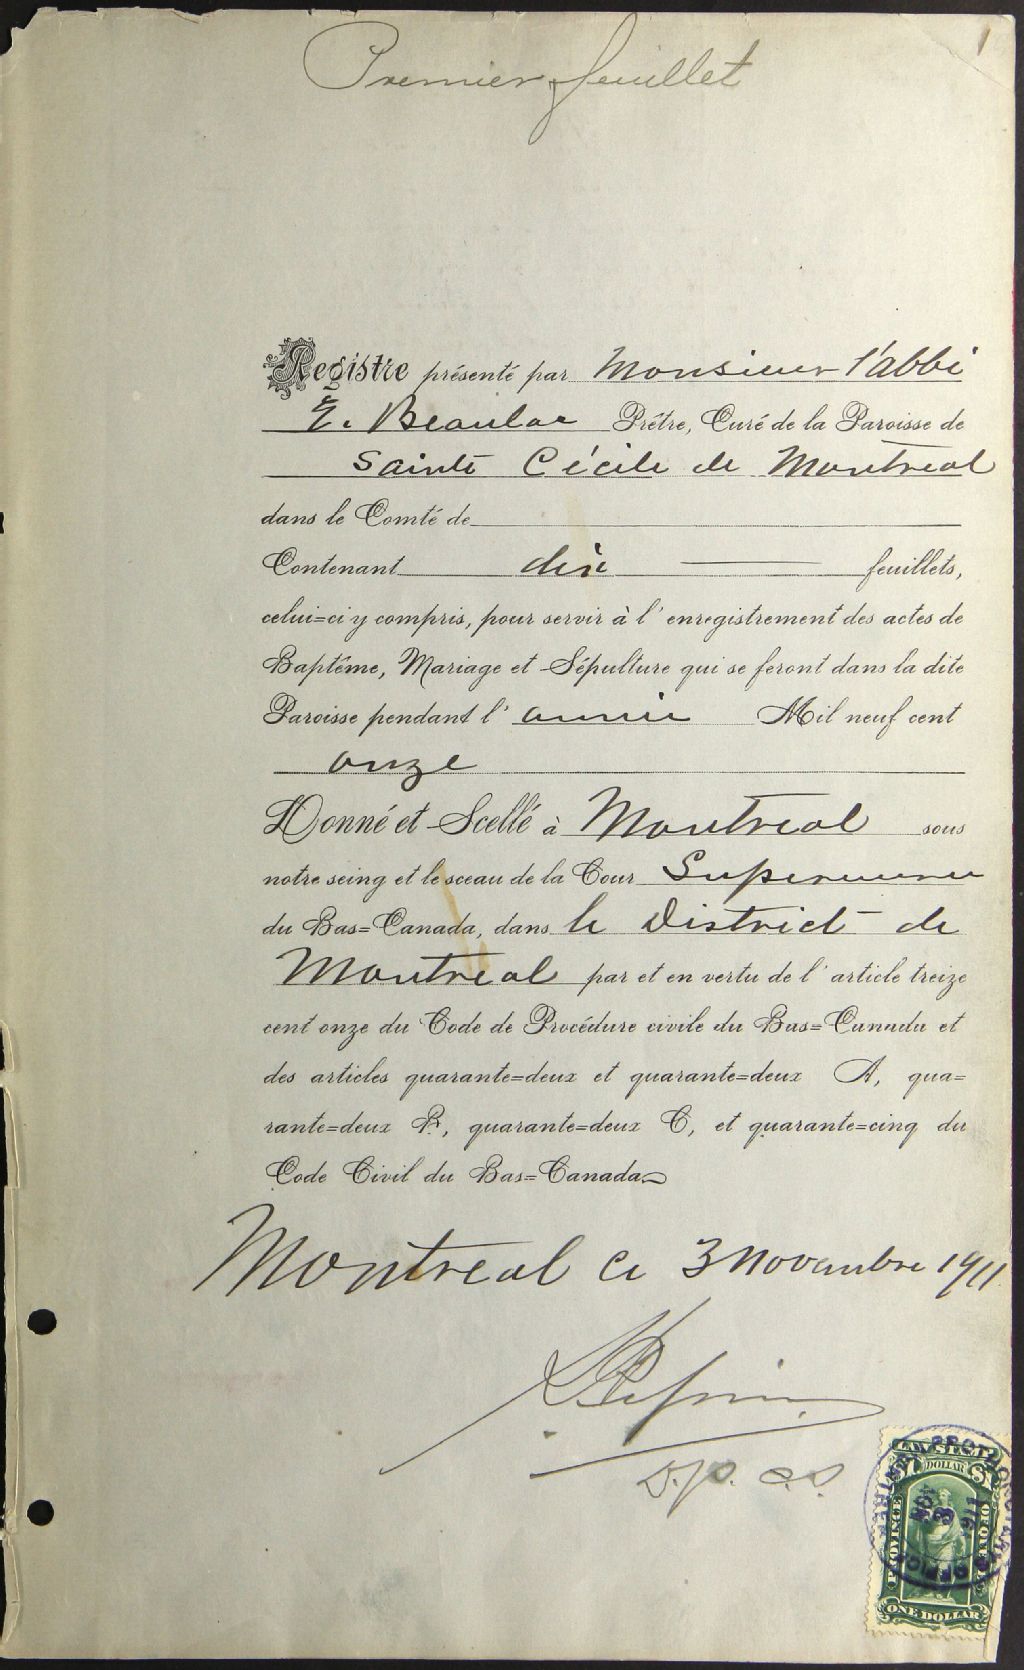 1
Premier feuillet
Registre présenté par Monsieur l'abbé
E. Beaulac Prêtre, Curé de la Paroisse de
Sainte Cécile de Montreal
dans le Comté de
Contenant dix feuillets,
celui=ci y compris, pour servir à l'enregistrement des actes de
Baptême, Mariage et Sépulture qui se feront dans la dite
Paroisse pendant l'année Mil neuf cent
onze
Donné et Scellé à Montreal sous
notre seing et le sceau de la Cour Superieure
du Bas=Canada, dans le District de
Montreal par et en vertu de l'article treize
cent onze du Code de Procédure civile du Bas=Canada et
des articles quarante=deux et quarante=deux A, qua=
rante=deux B, quarante=deux C, et quarante=cinq du
Code Civil du Bas=Canada
Montreal ce 3 Novembre 1911
D.p. c.s.
LAW STAMP
$1 DOLLAR $1
PROVINCE OF QUEBEC
ONE DOLLAR
PROTHONOTARY'S OFFICE
NOV
3
1911